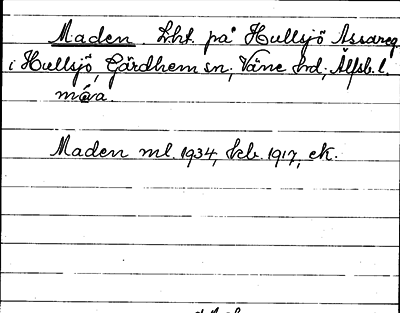 Maden Lht. på Hullsjö Assareg.
i Hullsjö, Gärdhem sn; Väne hd; Älfsb. l.
måa.
Maden ml. 1934, Jeb. 1917, ek.